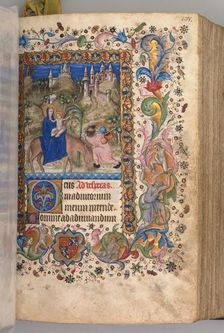 Deus Ad vesperas.
in adiutorium
meum intende
Domine ad adiuvandum